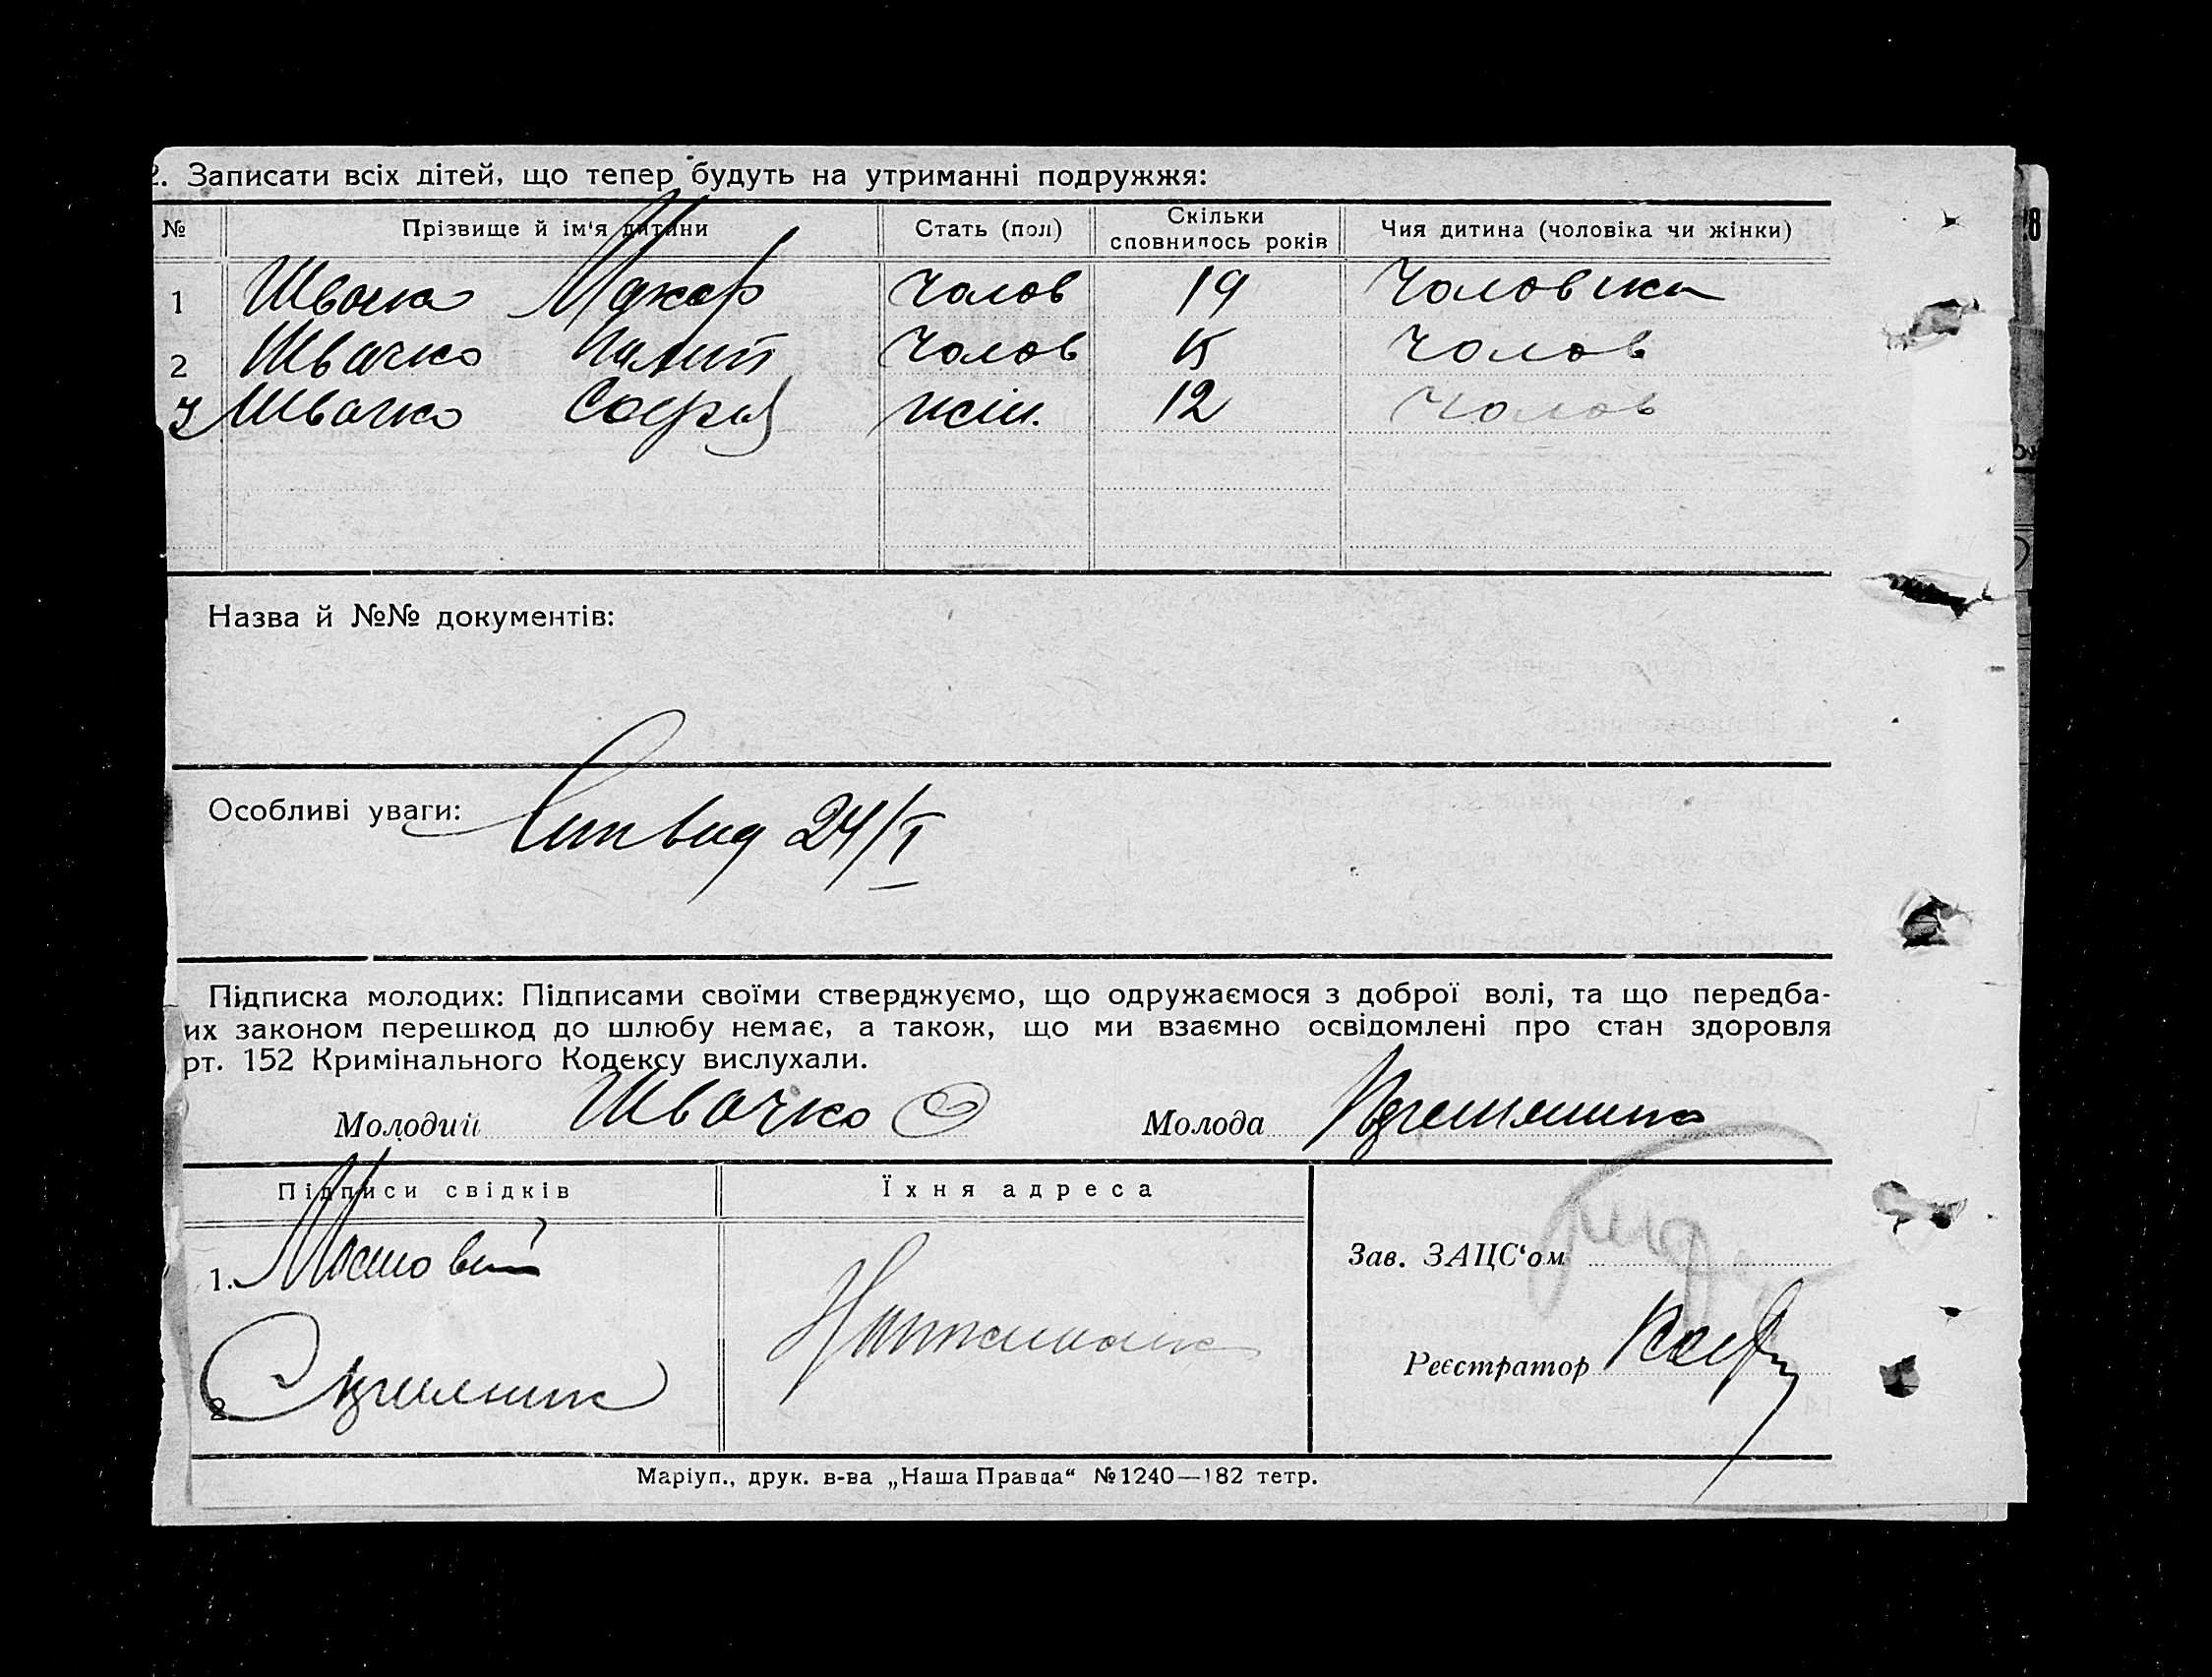 2. Записати всіх дітей, що тепер будуть на утриманні подружжя:
№ Прізвище й ім'я дитини Стать (пол) Скільки сповнилось років Чия дитина (чоловіка чи жінки)
1 Швачка Макар чолов 19 Чоловіка
2 Швачко чолов 15 чолов
3 Швачко жін. 12 чолов
Назва й №№ документів:
Особливі уваги: вид 24/I
Підписка молодих: Підписами своїми стверджуємо, що одружаємося з доброї волі, та що передба-
их законом перешкод до шлюбу немає, а також, що ми взаємно освідомлені про стан здоровля
рт. 152 Кримінального Кодексу вислухали.
Молодий Швачко Молода
Підписи свідків Їхня адреса
1.
Зав. ЗАЦС'ом
2
Реєстратор
Маріуп., друк. в-ва „Наша Правда“ №1240—182 тетр.